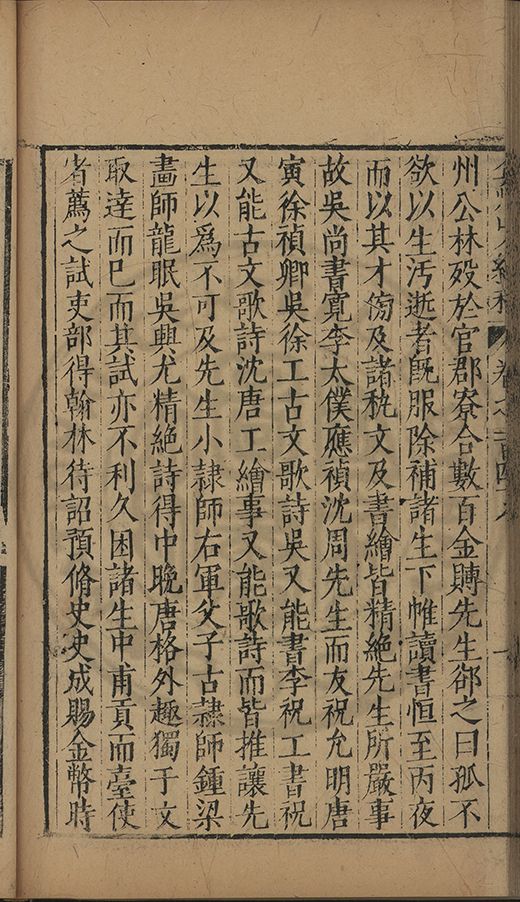 州公林歿於官郡寮合數百金賻先生郤之曰孤不
欲以生汚逝者旣服除補諸生下帷讀書恒至丙夜
而以其才傍及諸秇文及書繪皆精絶先生所嚴事
故吳尚書寬李太僕應禎沈周先生而友祝允明唐
寅徐禎卿吳徐工古文歌詩吳又能書李祝工書祝
又能古文歌詩沈唐工繪事又能歌詩而皆推讓先
生以爲不可及先生小隷師右軍父子古隷師鍾梁
畵師龍眠吳興尤精絶詩得中晚唐格外趣獨于文
取達而已而其試亦不利久困諸生中甫貢而臺使
者薦之試吏部得翰林待詔預脩史史成賜金幣時